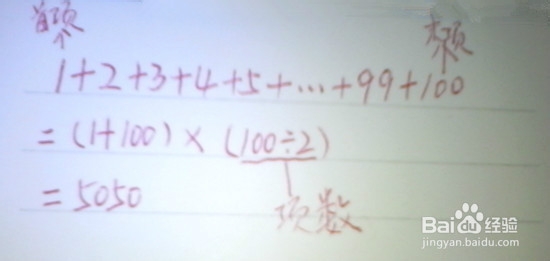 首项 末项
1+2+3+4+5+…+99+100
=(1+100)×(100÷2)
=5050
项数
Baidu经验
jingyan.baidu.com